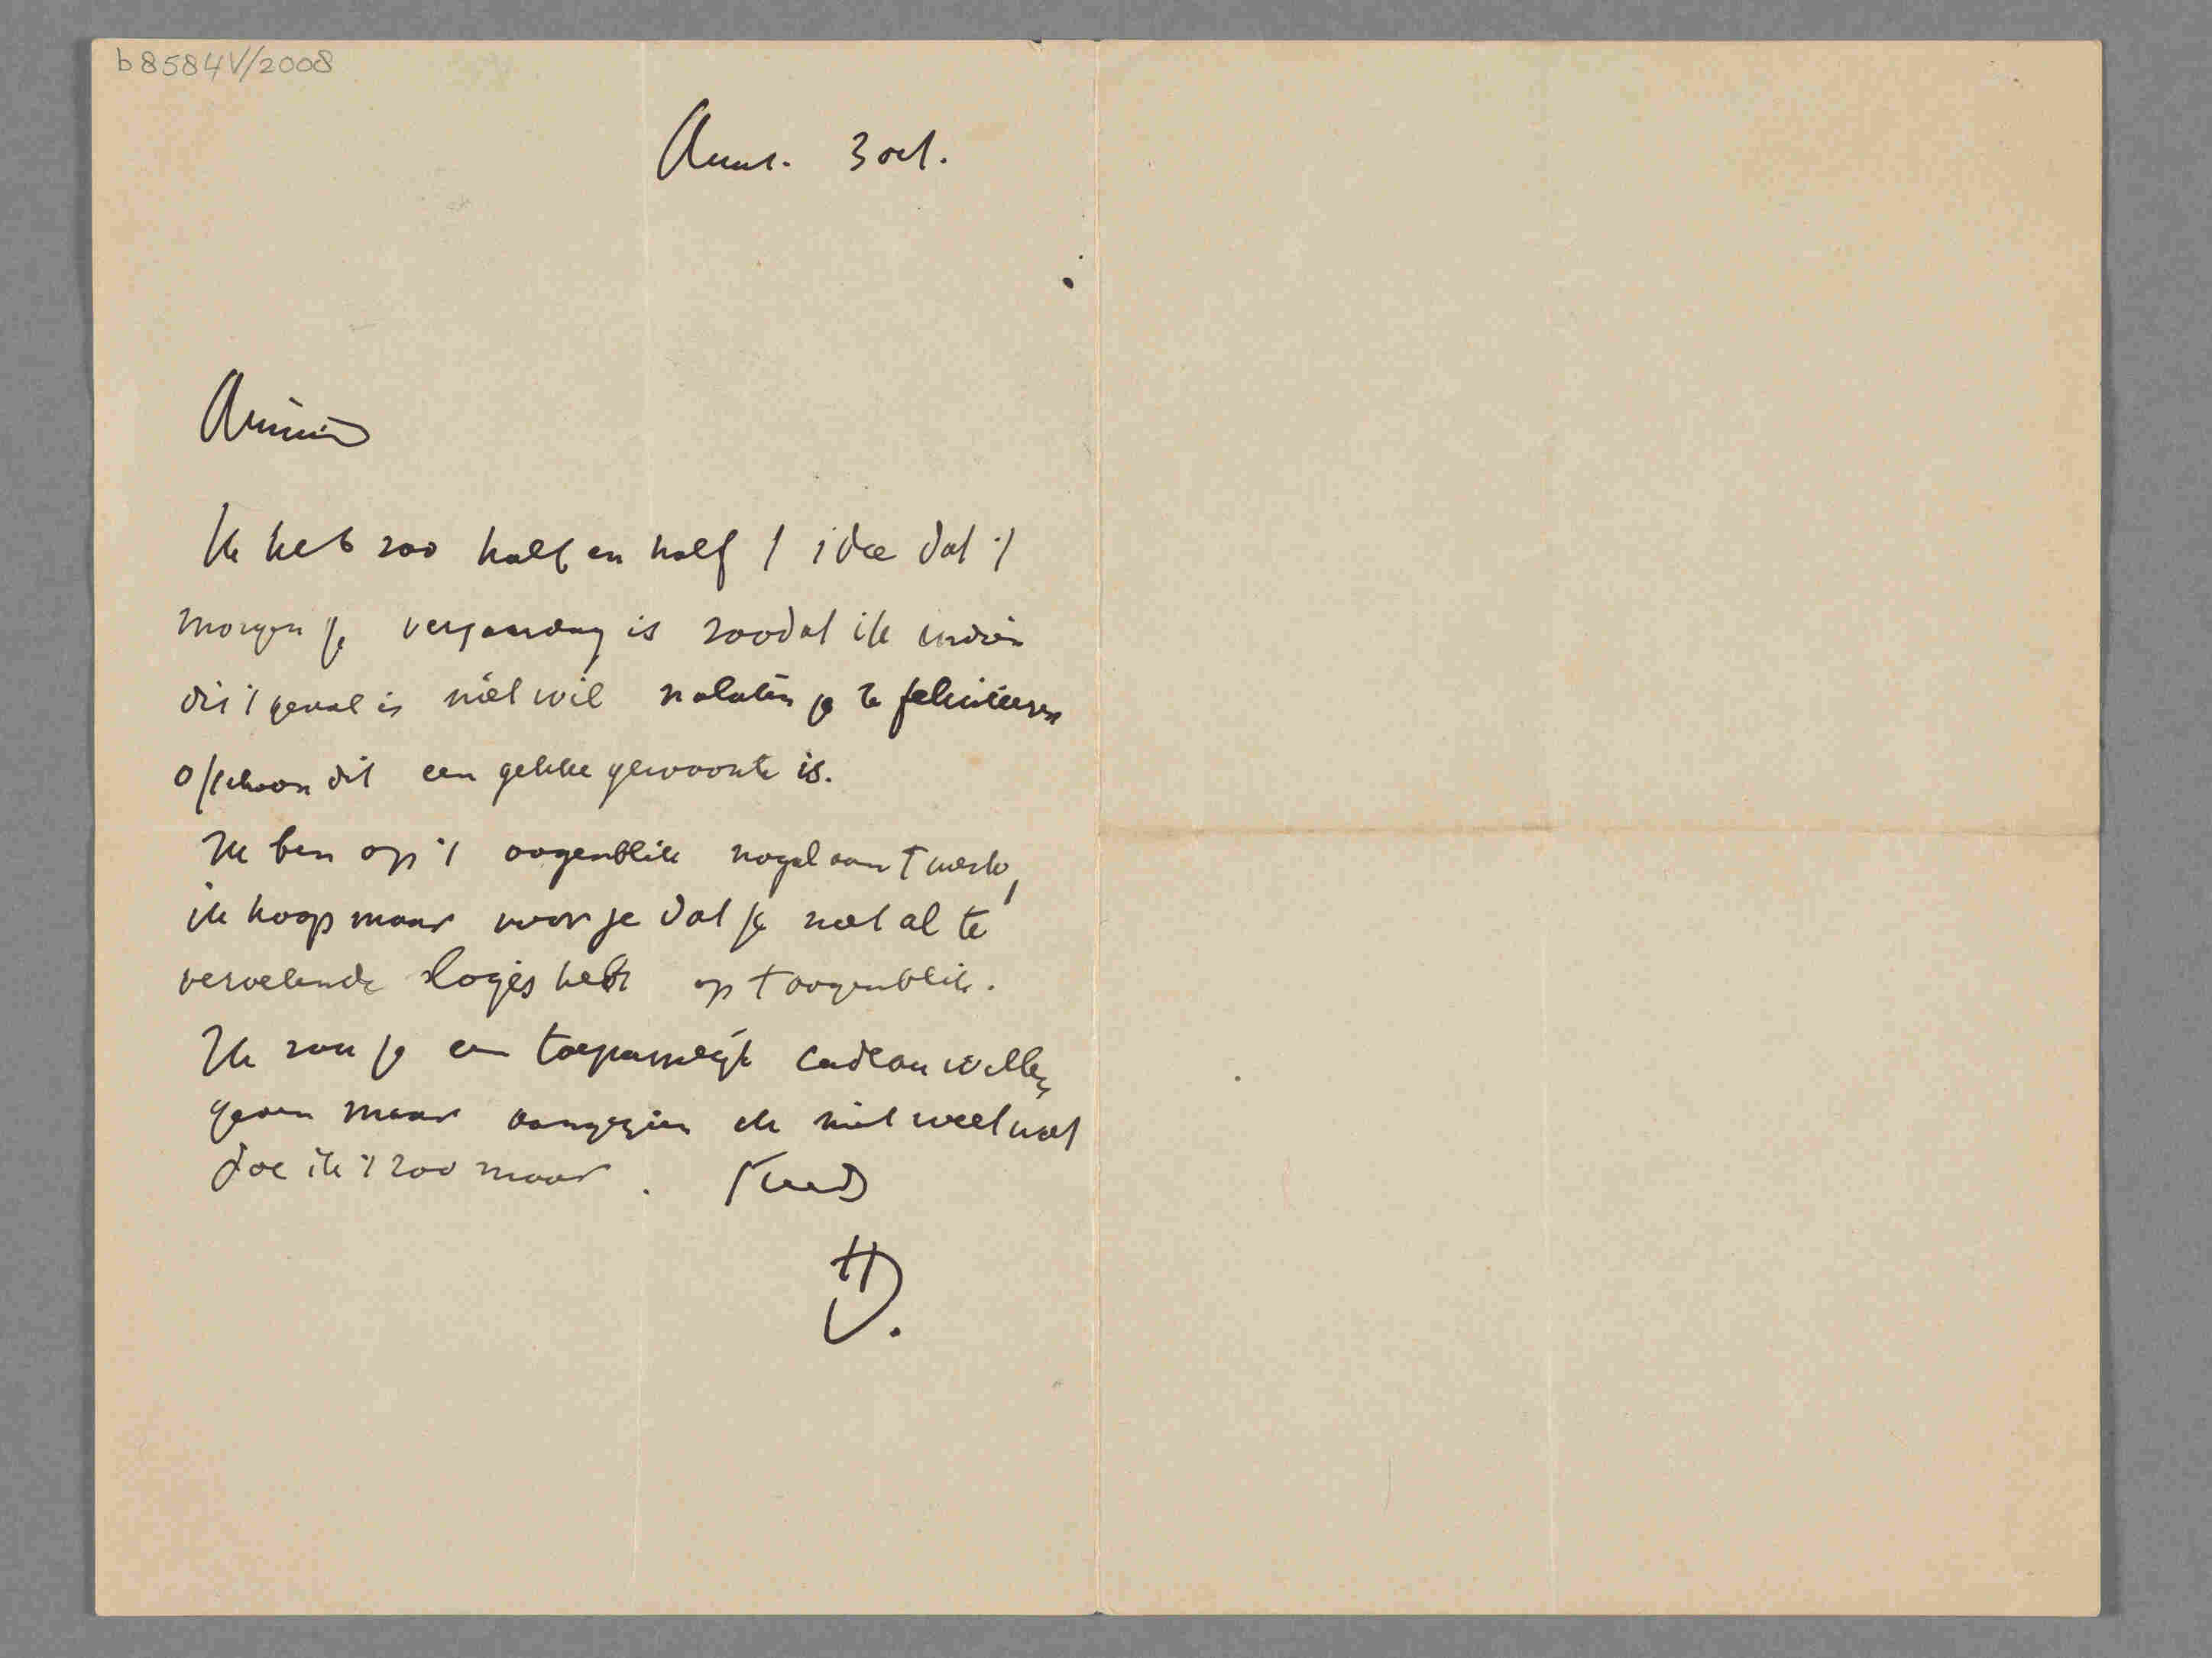 b8584V/2008
Ams. 3 oct.
Amice
Ik heb zoo half en half 't idee dat 't
morgen je verjaardag is zoodat ik indien
dit 't geval is niet wil nalaten je te feliciteeren
ofschoon dit een gekke gewoonte is.
Ik ben op 't oogenblik nogal aan 't werk,
ik hoop maar voor je dat je niet al te
vervelende logés hebt op 't oogenblik.
Ik zou je een toepasselijk cadeau willen
geven maar aangezien ik niet weet wat
doe ik 't zoo maar.